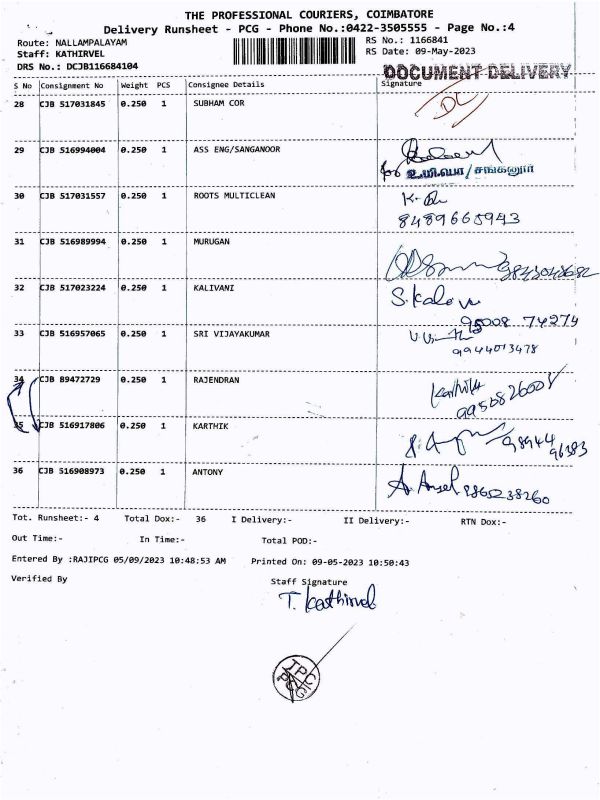 THE PROFESSIONAL COURIERS, COIMBATORE
Delivery Runsheet - PCG - Phone No.:0422-3505555 - Page No.:4
Route: NALLAMPALAYAM RS No.: 1166841
Staff: KATHIRVEL RS Date: 09-May-2023
DRS No.: DCJB116684104
DOCUMENT DELIVERY
S No Consignment No Weight PCS Consignee Details Signature
28 CJB 517031845 0.250 1 SUBHAM COR DC
29 CJB 516994004 0.250 1 ASS ENG/SANGANOOR
for உ.மி.பொ/சங்கனூர்
30 CJB 517031557 0.250 1 ROOTS MULTICLEAN
8489665943
31 CJB 516989994 0.250 1 MURUGAN
32 CJB 517023224 0.250 1 KALIVANI S.Kaleva
95008 74274
33 CJB 516957065 0.250 1 SRI VIJAYAKUMAR
9944013478
34 CJB 89472729 0.250 1 RAJENDRAN Karthik
35 CJB 516917806 0.250 1 KARTHIK
98944
96383
36 CJB 516908973 0.250 1 ANTONY A. Ansel 8865238260
Tot. Runsheet:- 4 Total Dox:- 36 I Delivery:- II Delivery:- RTN Dox:-
Out Time:- In Time:- Total POD:-
Entered By :RAJIPCG 05/09/2023 10:48:53 AM Printed On: 09-05-2023 10:50:43
Verified By Staff Signature
T. Kathirvel